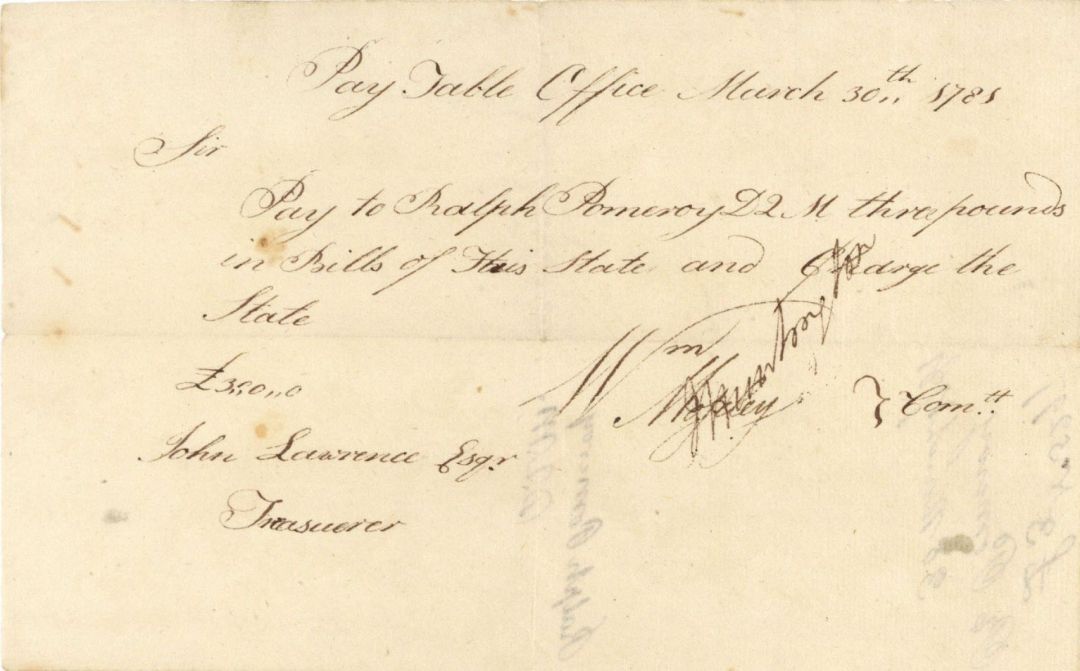 Pay Table Office March 30th 1781
Sir
Pay to Ralph Pomeroy D2M three pounds
in Bills of this State and Charge the
State
£3,,0,,0
Wm Moseley } Comtt
Huntington
John Lawrence Esqr
Treasuerer
Ralph Pomeroy